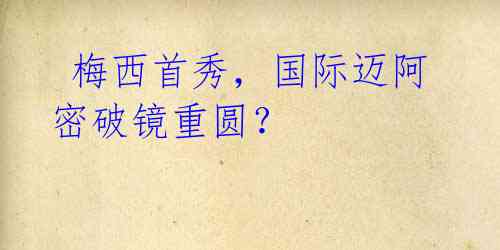 梅西首秀，国际迈阿
密破镜重圆？